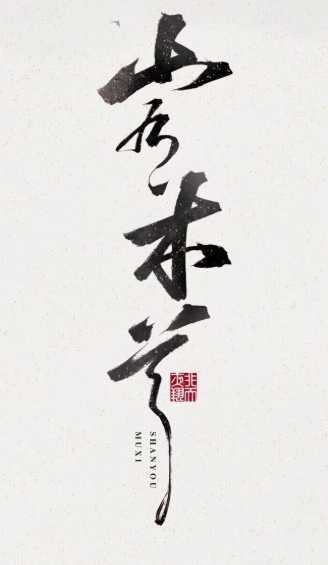 山有木兮
SHANYOU
MUXI